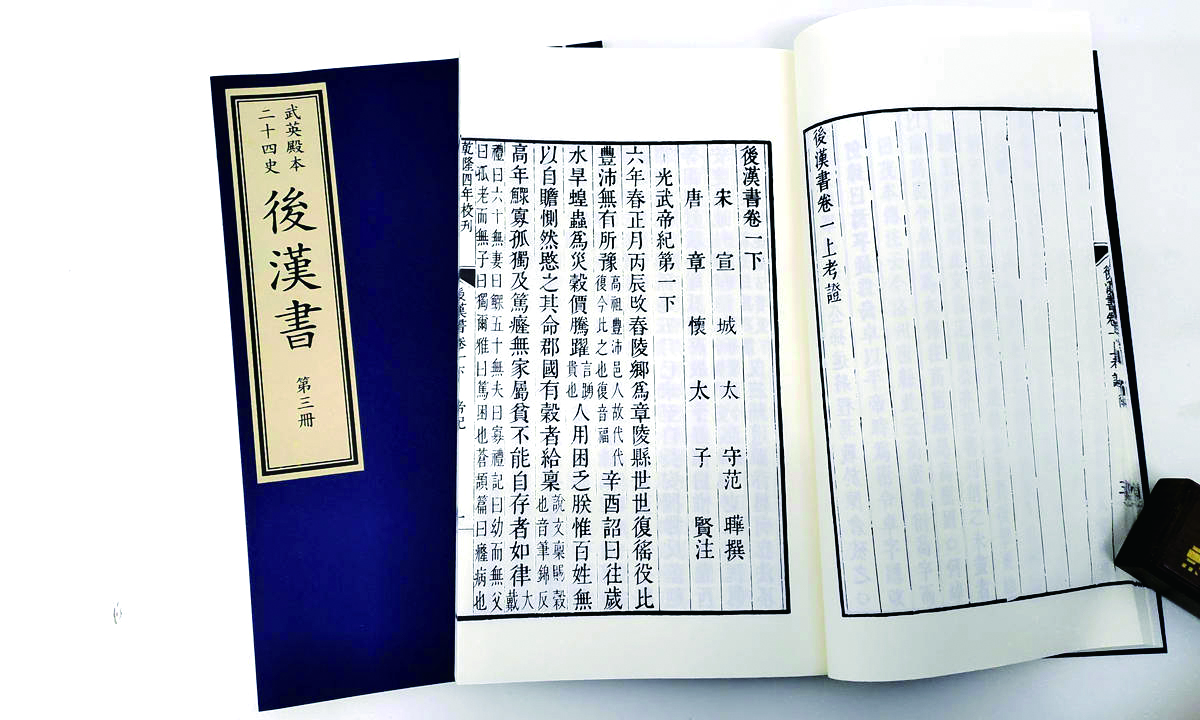 武英殿本
二十四史
後漢書
第三冊
後漢書卷一上考證
後漢書卷一下
宋宣城太守范曄撰
唐章懷太子賢注
光武帝紀第一下
六年春正月丙辰改舂陵鄉爲章陵縣世世復徭役比
豐沛無有所豫高祖豐沛邑人故代代復今比之也復音福辛酉詔曰往歲
水旱蝗蟲爲災穀價騰躍言踴貴也人用困乏朕惟百姓無
以自贍惻然愍之其命郡國有穀者給稟說文稟賜穀也音筆錦反
高年鰥寡孤獨及篤癃無家屬貧不能自存者如律大戴
禮曰六十無妻曰鰥五十無夫曰寡禮記曰幼而無父
曰孤老而無子曰獨爾雅曰篤困也蒼頡篇曰癃病也
乾隆四年校刊
後漢書卷一下